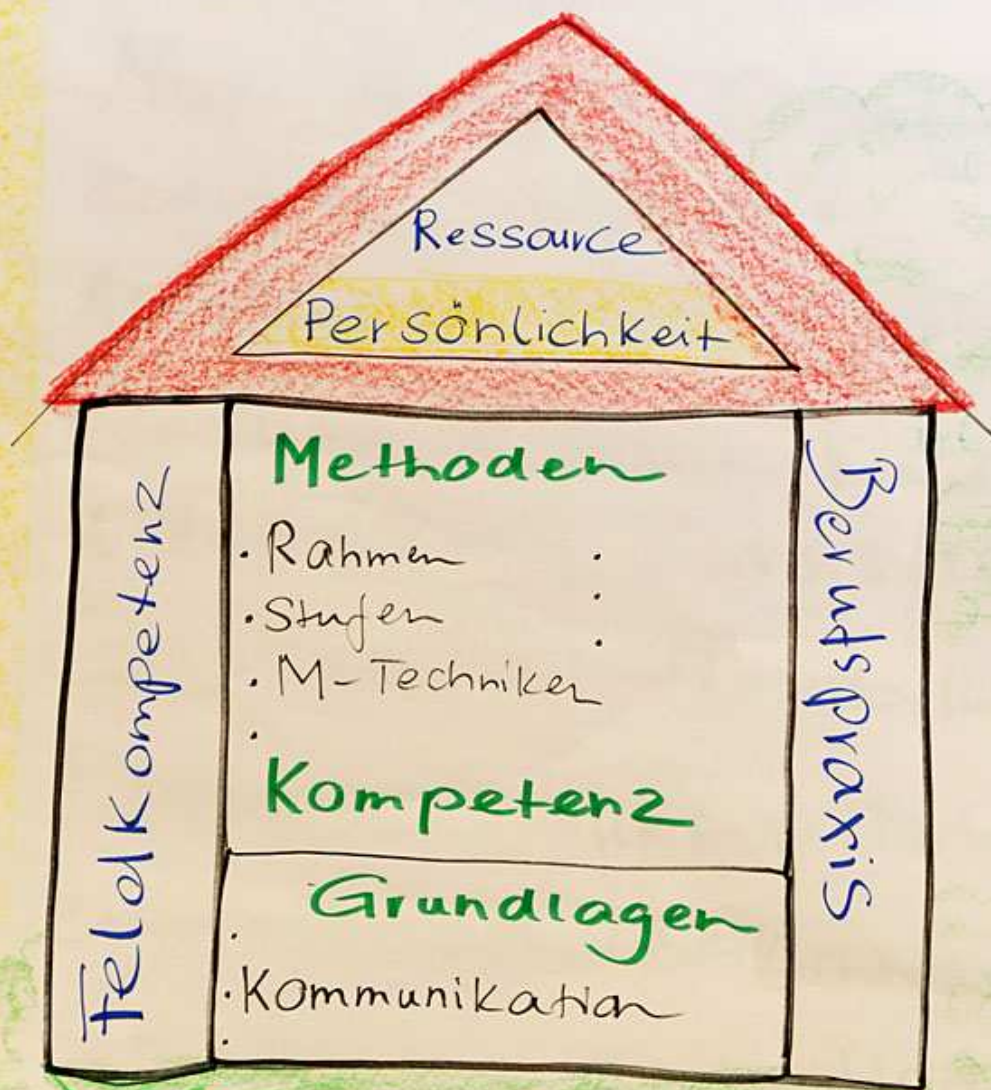 Ressource
Persönlichkeit
Feldkompetenz
Methoden
· Rahmen
· Stufen
· M-Techniken
·
·
·
·
Kompetenz
Grundlagen
·
· Kommunikation
·
Berufspraxis